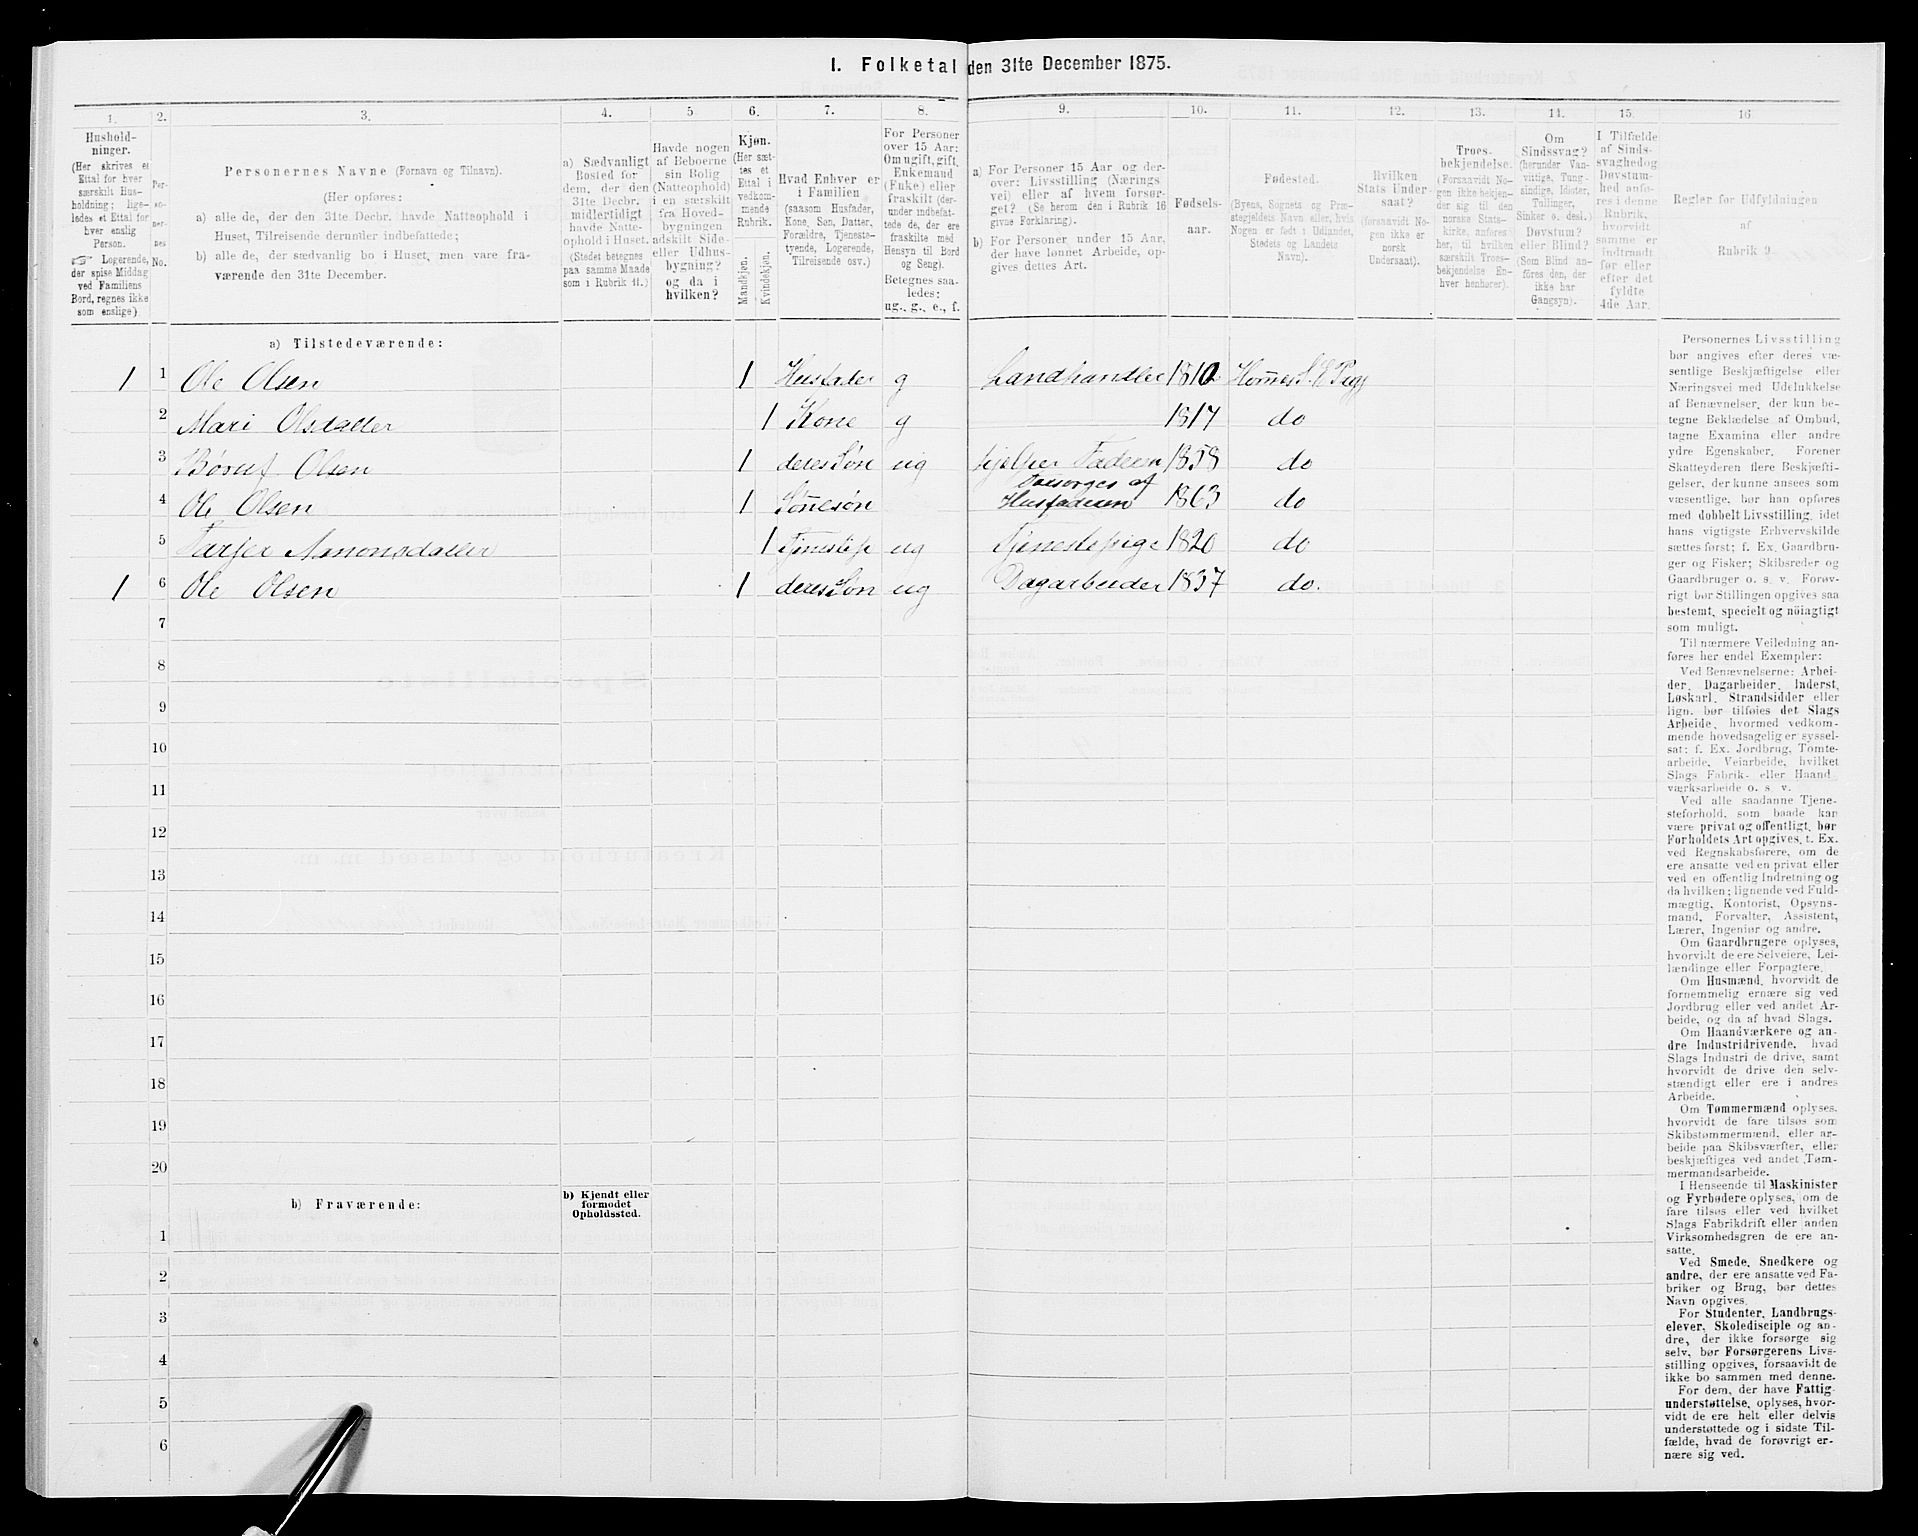 I. Folketal den 31te December 1875.
1. 2. 3. 4. 5 6. 7. 8. 9. 10. 11. 12. 13. 14. 15. 16
Hushold-
ninger.
(Her skrives et
Ettal for hver
særskilt Hus-
holdning; lige-
ledes et Ettal for
hver enslig
Person.
☞ Logerende,
der spise Middag
ved Familiens
Bord, regnes ikke
som enslige)
Per-
so-
ner-
nes
No.
Personernes Navne (Fornavn og Tilnavn).
(Her opføres:
a) alle de, der den 31te Decbr. havde Natteophold i
Huset, Tilreisende derunder indbefattede;
b) alle de, der sædvanlig bo i Huset, men vare fra-
værende den 31te December.
a) Sædvanligt
Bosted for
dem, der den
31te Decbr.
midlertidigt
havde Natte-
ophold i Huset.
(Stedet betegnes
paa samme Maade
som i Rubrik 11.)
Havde nogen
af Beboerne
sin Bolig
(Natteophold)
i en særskilt
fra Hoved-
bygningen
adskilt Side-
eller Udhus-
bygning?
og da i
hvilken?
Kjøn.
(Her sæt-
tes et
Ettal i
vedkom-
mende
Rubrik.
Mandkjøn.
Kvindekjøn.
Hvad Enhver er
i Familien
(saasom Husfader,
Kone, Søn, Datter,
Forældre, Tjeneste-
tyende, Logerende,
Tilreisende osv.)
For Personer
over 15 Aar:
Om ugift, gift,
Enkemand
(Enke) eller
fraskilt (der-
under indbefat-
tede de, der ere
fraskilte med
Hensyn til Bord
og Seng).
Betegnes saa-
ledes:
ug., g., e., f.
a) For Personer 15 Aar og der-
over: Livsstilling (Nærings
vei) eller af hvem forsør-
get? (Se herom den i Rubrik 16
givne Forklaring).
b) For Personer under 15 Aar,
der have lønnet Arbeide, op-
gives dettes Art.
Fødsels-
aar.
Fødested.
(Byens, Sognets og Præ-
stegjeldets Navn eller, hvis
Nogen er født i Udlandet,
Stedets og Landets
Navn).
Hvilken
Stats Under-
saat?
(forsaavidt No-
gen ikke er
norsk
Undersaat).
Troes-
bekjendelse.
(Forsaavidt No-
gen ikke bekjen-
der sig til den
norske Stats-
kirke, anføres
her, til hvilken
særskilt Troes-
bekjendelse En-
hver henhører).
Om
Sindssvag?
(herunder Van-
vittige, Tung-
sindige, Idioter,
Tullinger,
Sinker o. desl.)
Døvstum?
eller Blind?
(Som Blind an-
føres den, der
ikke har
Gangsyn).
I Tilfælde
af Sinds-
svaghed og
Døvstum-
hed anfø-
res i denne
Rubrik,
hvorvidt
samme er
indtraadt
før eller
efter det
fyldte
4de Aar.
Regler for Udfyldningen
af
Rubrik 9.
a) Tilstedeværende:
1 1 Ole Olsen 1 Husfader g Landhandler 1810 Homes
2 Mari Olsdatter 1 Kone g 1817 do
3 Olsen 1 deres Søn ug hjelper Faderen 1858 do
4 Ole Olsen 1 Sønesøn Forsørges af
Husfaderen 1863 do
5 1 ug Tjenestepige 1820 do
1 6 Ole Olsen 1 deres Søn ug Dagarbeider 1837 do.
7
8
9
10
11
12
13
14
15
16
17
18
19
20
b) Fraværende:
b) Kjendt eller
formodet
Opholdssted.
1
2
3
4
5
6
Personernes Livsstilling
bør angives efter deres væ-
sentlige Beskjæftigelse eller
Næringsvei med Udelukkelse
af Benævnelser, der kun be-
tegne Beklædelse af Ombud,
tagne Examina eller andre
ydre Egenskaber. Forener
Skatteyderen flere Beskjæfti-
gelser, der kunne ansees som
væsentlige, bør han opføres
med dobbelt Livsstilling, idet
hans vigtigste Erhvervskilde
sættes først; f. Ex. Gaardbru-
ger og Fisker; Skibsreder og
Gaardbruger o. s. v. Forøv-
rigt bør Stillingen opgives saa
bestemt, specielt og nöiagtigt
som muligt.
Til nærmere Veiledning an-
føres her endel Exempler:
Ved Benævnelserne: Arbei-
der, Dagarbeider, Inderst,
Løskarl, Strandsidder eller
lign. bør tilføies det Slags
Arbeide, hvormed vedkom-
mende hovedsagelig er syssel-
sat; f. Ex. Jordbrug, Tomte-
arbeide, Veiarbeide, hvilket
Slags Fabrik- eller Haand
værksarbeide o. s. v.
Ved alle saadanne Tjene-
steforhold, som baade kan
være privat og offentligt, bør
Forholdets Art opgives, t. Ex.
ved Regnskabsførere, om de
ere ansatte ved en privat eller
ved en offentlig Indretning og
da hvilken; lignende ved Fuld-
mægtig, Kontorist, Opsyns-
mand, Forvalter, Assistent,
Lærer, Ingeniør og andre.
Om Gaardbrugere oplyses,
hvorvidt de ere Selveiere, Lei-
lændinge eller Forpagtere.
Om Husmænd, hvorvidt de
fornemmelig ernære sig ved
Jordbrug eller ved andet Ar-
beide, og da af hvad Slags.
Om Haandværkere og an-
dre Industridrivende, hvad
Slags Industri de drive, samt
hvorvidt de drive den selv-
stændigt eller ere i andres
Arbeide.
Om Tømmermænd oplyses,
hvorvidt de fare tilsøs som
Skibstømmermænd, eller ar-
beide paa Skibsværfter, eller
beskjæftiges ved andet Tøm-
mermandsarbeide.
I Henseende til Maskinister
og Fyrbødere oplyses, om de
fare tilsøs eller ved hvilket
Slags Fabrikdrift eller anden
Virksomhedsgren de ere an-
satte.
Ved Smede, Snedkere og
andre, der ere ansatte ved Fa-
briker og Brug, bør dettes
Navn opgives.
For Studenter, Landbrugs-
elever, Skoledisciple og an-
dre, der ikke forsørge sig
selv, bør Forsørgerens Livs-
stilling opgives, forsaavidt de
ikke bo sammen med denne.
For dem, der have Fattig-
understøttelse, oplyses, hvor-
vidt de ere helt eller delvis
understøttede og i sidste Til-
fælde, hvad de forøvrigt er-
nære sig ved.